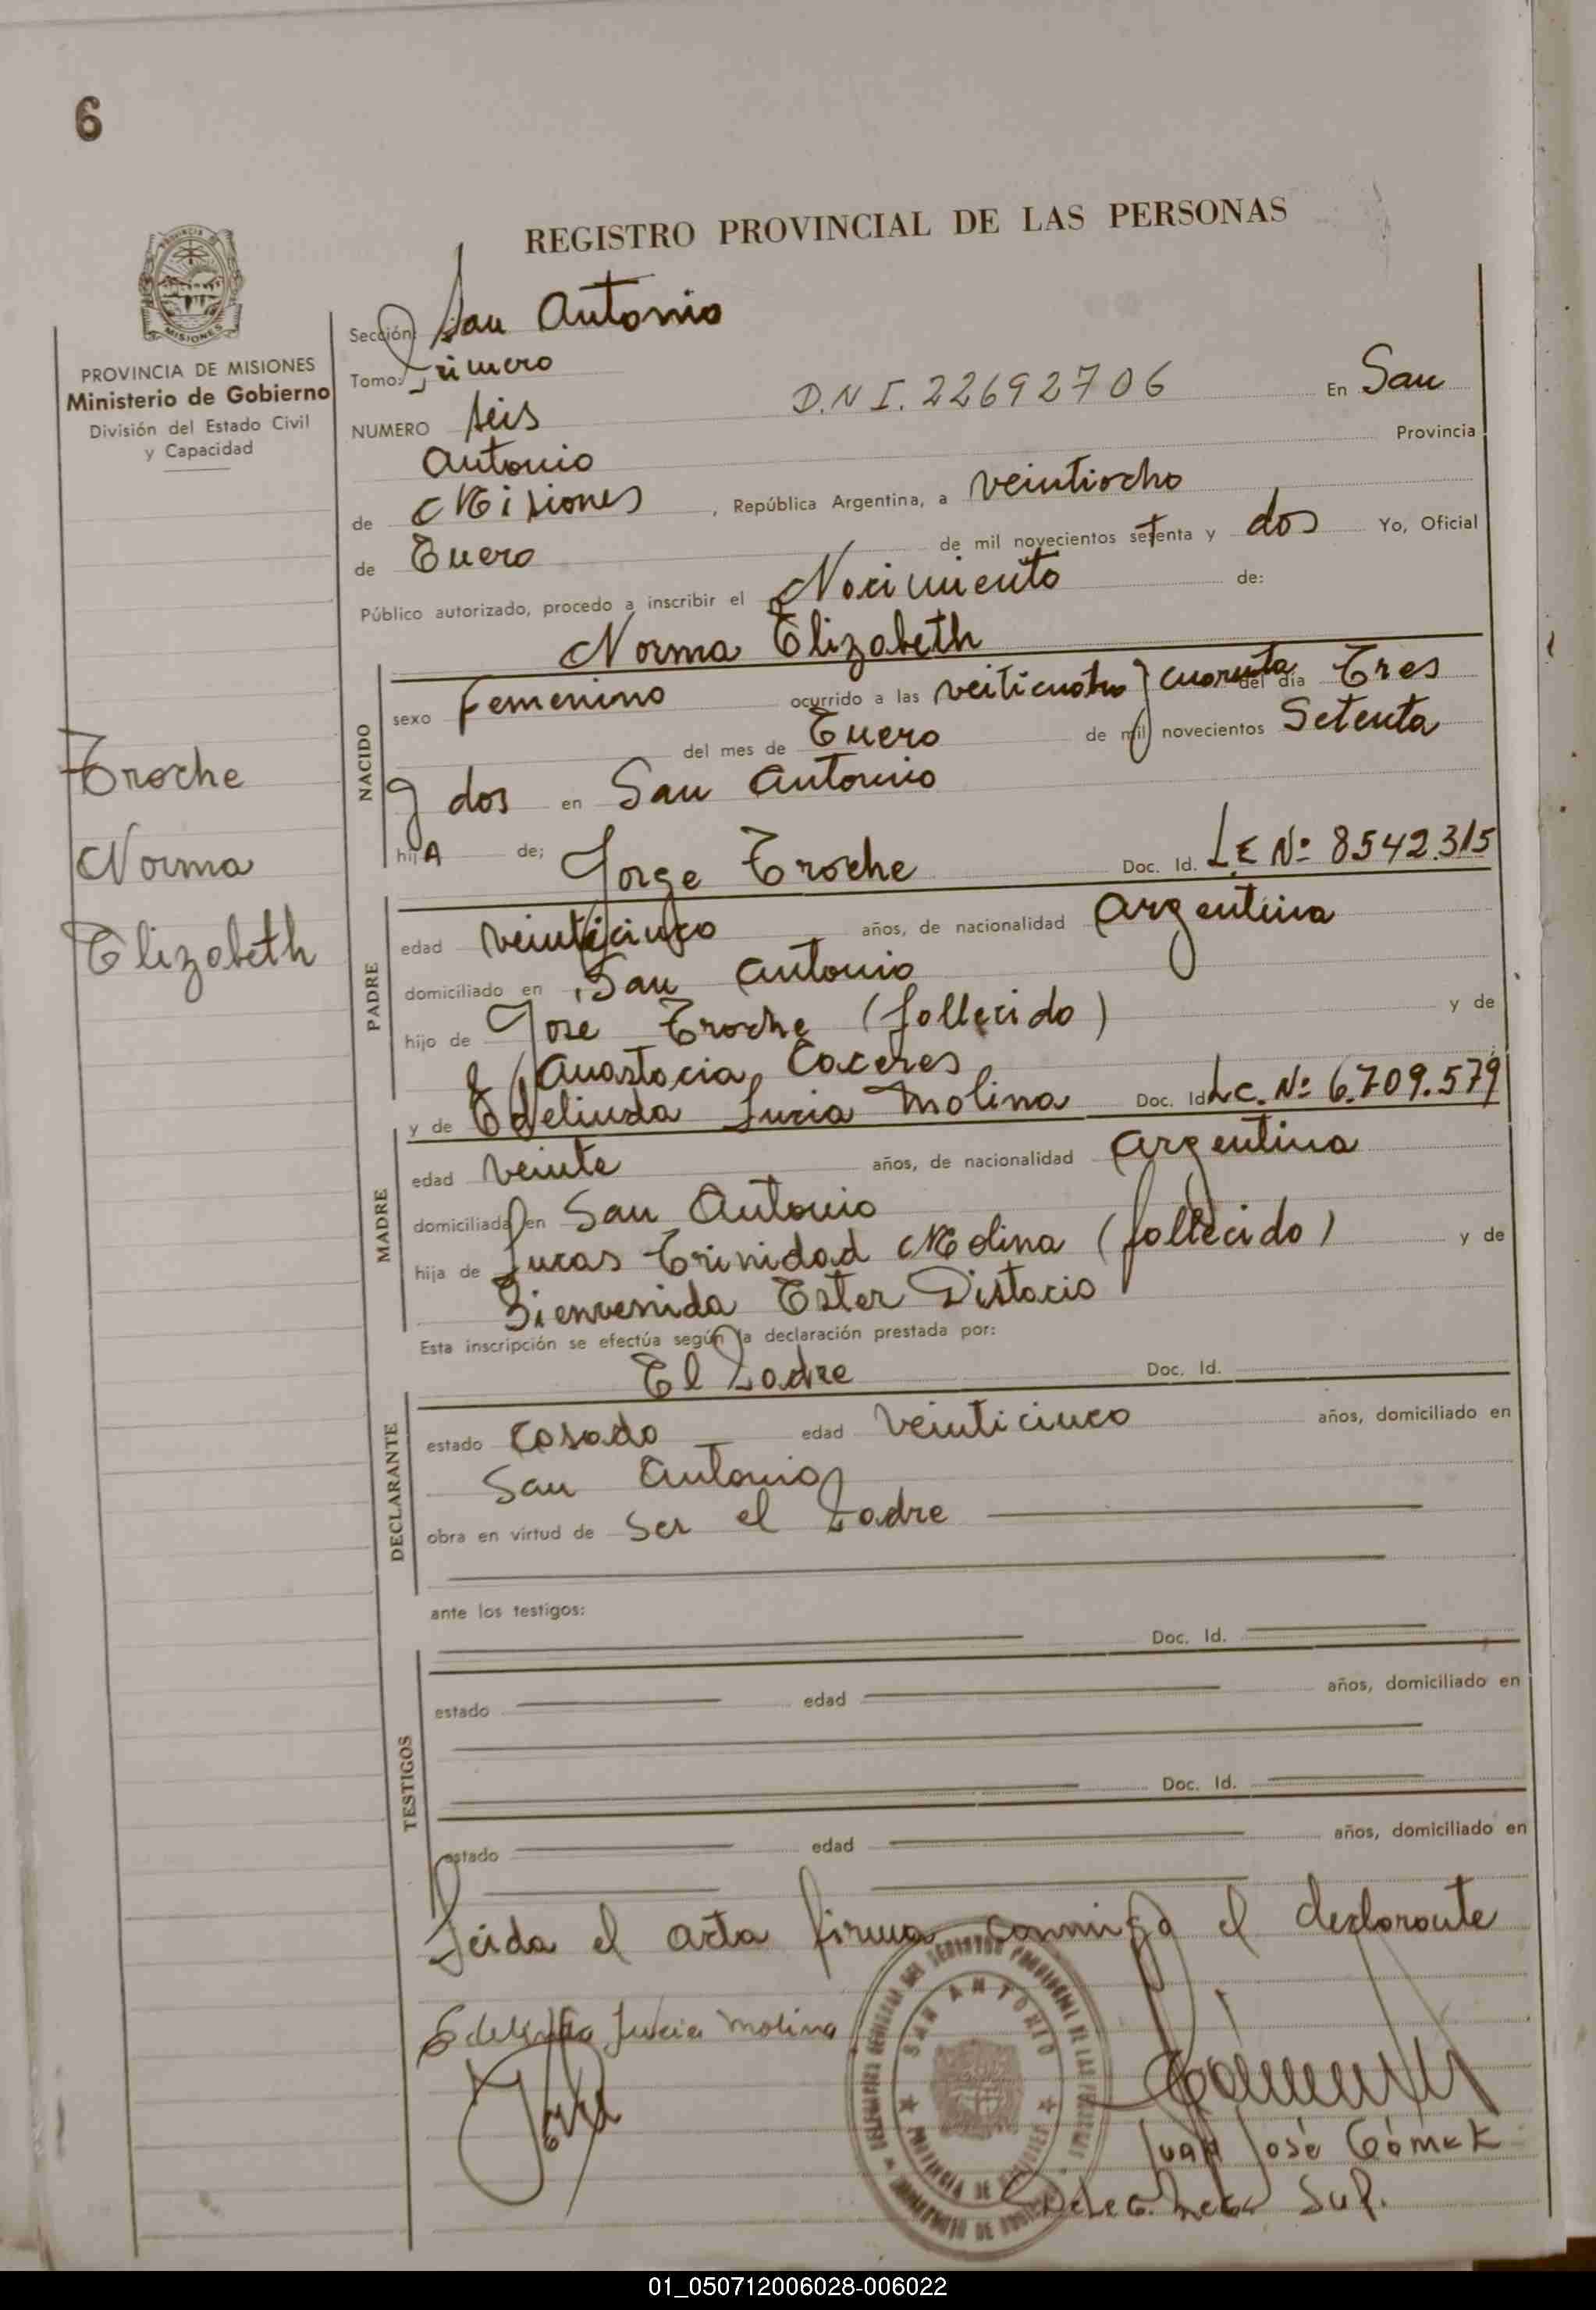 6
REGISTRO PROVINCIAL DE LAS PERSONAS
PROVINCIA DE
MISIONES
PROVINCIA DE MISIONES
Ministerio de Gobierno
División del Estado Civil
y Capacidad
Troche
Norma
Elizabeth
Sección: San Antonio
Tomo: Primero
D.N.I. 22692706 En San
NUMERO seis
Antonio Provincia
de Misiones, República Argentina, a veintiocho
de Enero de mil novecientos setenta y dos Yo, Oficial
Público autorizado, procedo a inscribir el Nacimiento de:
Norma Elizabeth
NACIDO
sexo Femenino ocurrido a las veiticuatro y cuarenta del día Tres
del mes de Enero de mil novecientos Setenta
y dos en San Antonio
hijA de; Jorge Troche Doc. Id. L.E Nº 8542.315
PADRE
edad veinticinco años, de nacionalidad argentina
domiciliado en San Antonio
hijo de Jose Troche (fallecido) y de
Anastacia Caceres
y de Edelinda Lucia Molina Doc. Id. L.C. Nº 6.709.579
MADRE
edad veinte años, de nacionalidad argentina
domiciliada en San Antonio
hija de Lucas Trinidad Molina (fallecido) y de
Bienvenida Ester Distacio
Esta inscripción se efectúa según la declaración prestada por:
El Padre Doc. Id.
DECLARANTE
estado casado edad veinticinco años, domiciliado en
San Antonio
obra en virtud de ser el Padre
ante los testigos:
Doc. Id.
TESTIGOS
estado edad años, domiciliado en
Doc. Id.
estado edad años, domiciliado en
Leida el acta firma conmigo el declarante
Edelinda Lucia Molina
SAN ANTONIO
PROVINCIA DE MISIONES
Juan José Gómez
Sup.
01_050712006028-006022